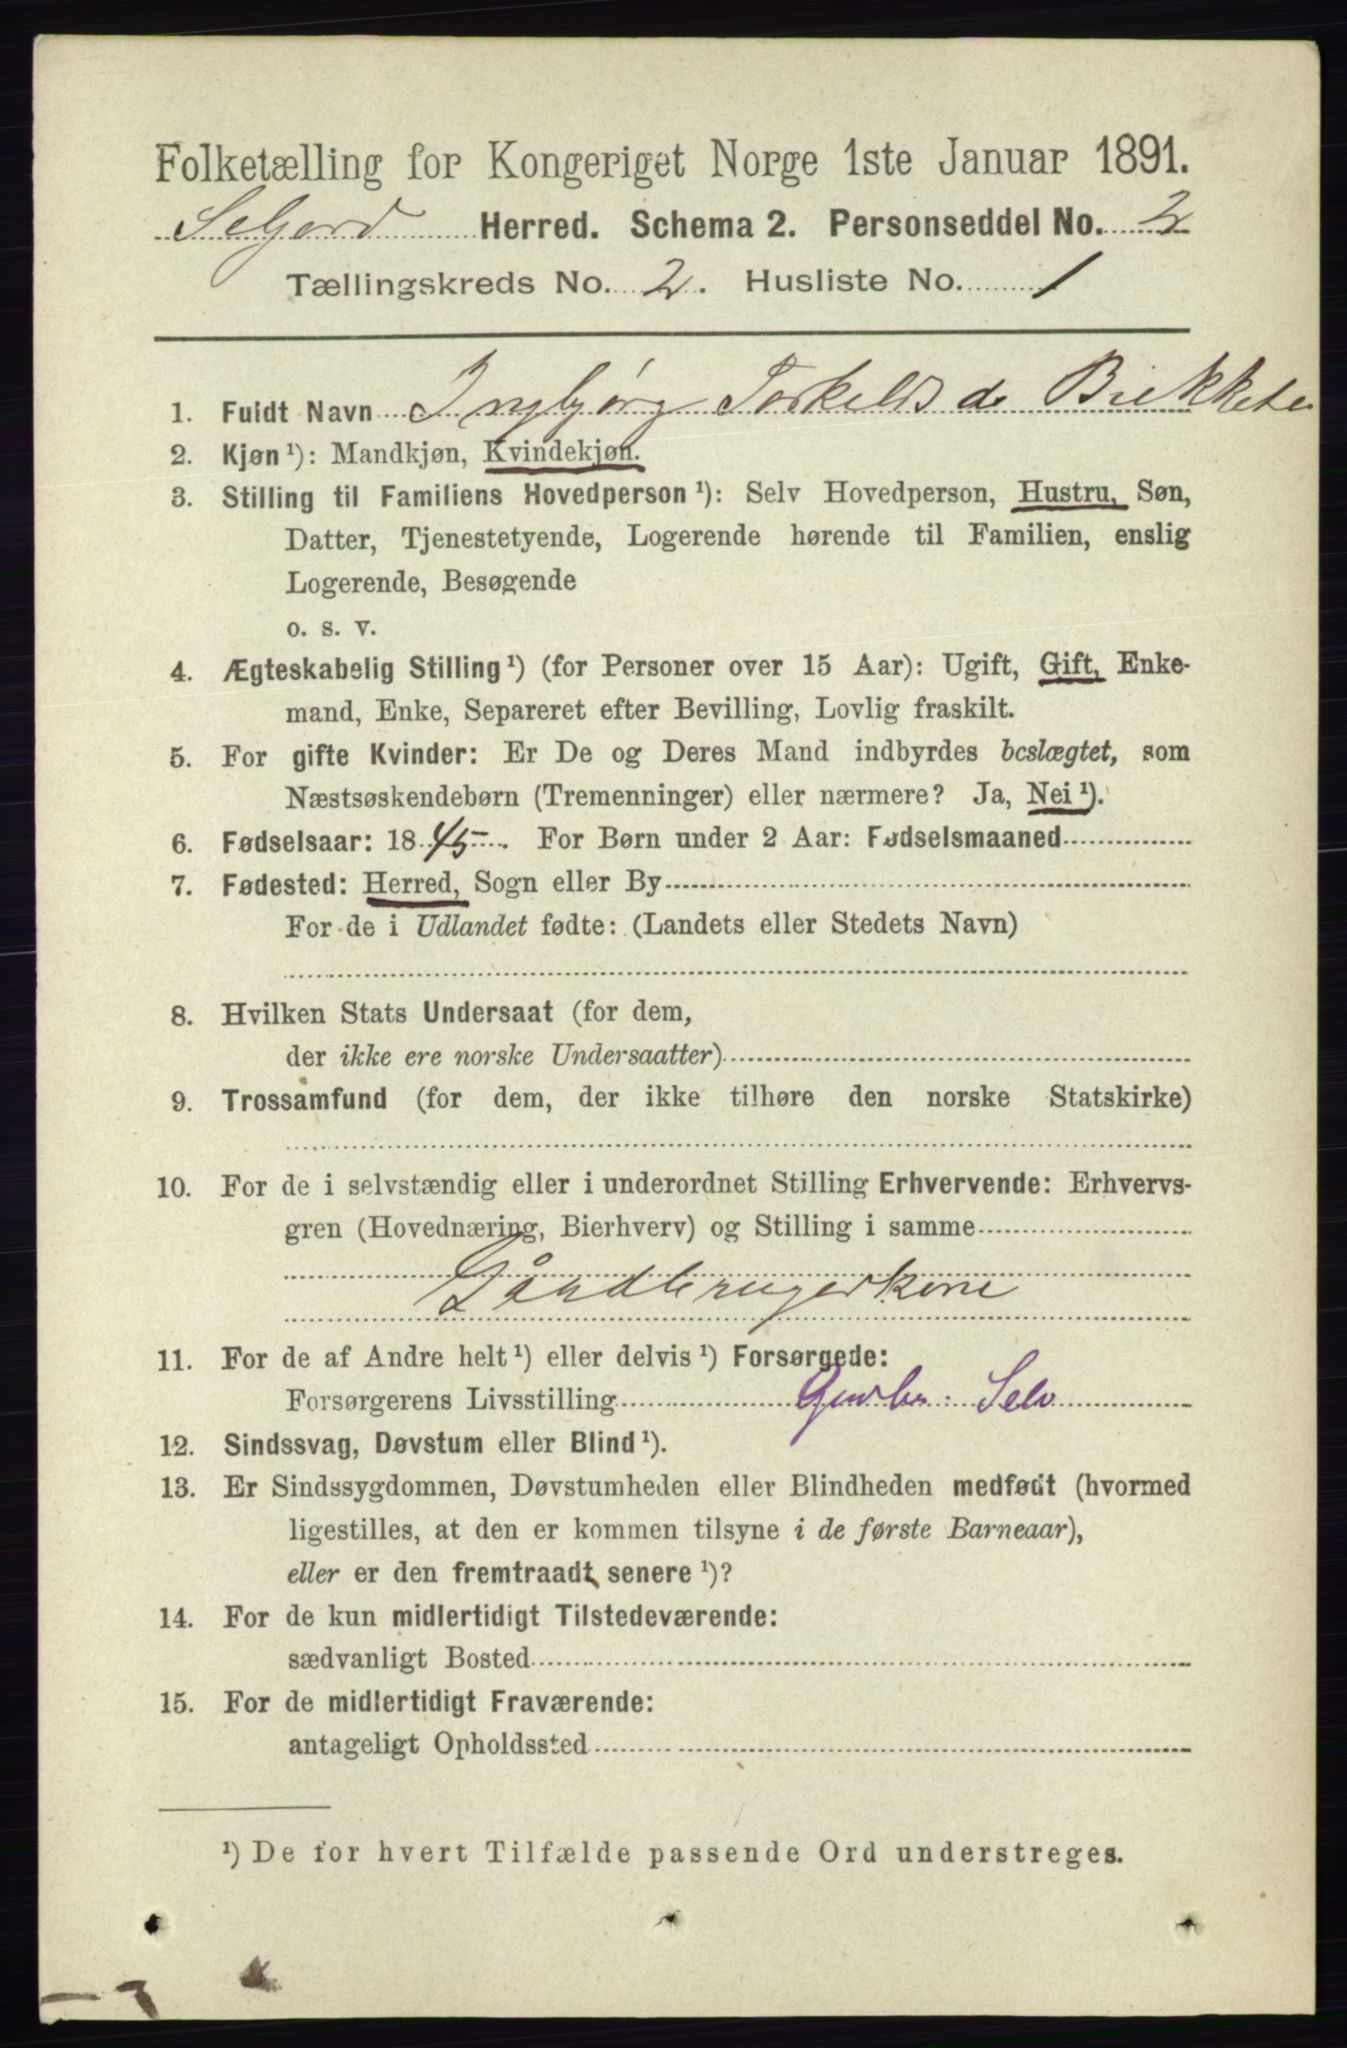 Folketælling for Kongeriget Norge 1ste Januar 1891.
Seljord Herred. Schema 2. Personseddel No. 2
Tællingskreds No. 2. Husliste No. 1
1. Fuldt Navn Ingbjørg Torkelsd
2. Kjøn ¹): Mandkjøn, Kvindekjøn.
3. Stilling til Familiens Hovedperson ¹): Selv Hovedperson, Hustru, Søn,
Datter, Tjenestetyende, Logerende hørende til Familien, enslig
Logerende, Besøgende
o. s. v.
4. Ægteskabelig Stilling ¹) (for Personer over 15 Aar): Ugift, Gift, Enke-
mand, Enke, Separeret efter Bevilling, Lovlig fraskilt.
5. For gifte Kvinder: Er De og Deres Mand indbyrdes beslægtet, som
Næstsøskendebørn (Tremenninger) eller nærmere? Ja, Nei ¹).
6. Fødselsaar: 1845. For Børn under 2 Aar: Fødselsmaaned
7. Fødested: Herred, Sogn eller By
For de i Udlandet fødte: (Landets eller Stedets Navn)
8. Hvilken Stats Undersaat (for dem,
der ikke ere norske Undersaatter)
9. Trossamfund (for dem, der ikke tilhøre den norske Statskirke)
10. For de i selvstændig eller i underordnet Stilling Erhvervende: Erhvervs-
gren (Hovednæring, Bierhverv) og Stilling i samme
Gårdbrugerkone
11. For de af Andre helt ¹) eller delvis ¹) Forsørgede:
Forsørgerens Livsstilling Gmbr: Selv
12. Sindssvag, Døvstum eller Blind ¹).
13. Er Sindssygdommen, Døvstumheden eller Blindheden medfødt (hvormed
ligestilles, at den er kommen tilsyne i de første Barneaar),
eller er den fremtraadt senere ¹)?
14. For de kun midlertidigt Tilstedeværende:
sædvanligt Bosted
15. For de midlertidigt Fraværende:
antageligt Opholdssted
¹) De for hvert Tilfælde passende Ord understreges.